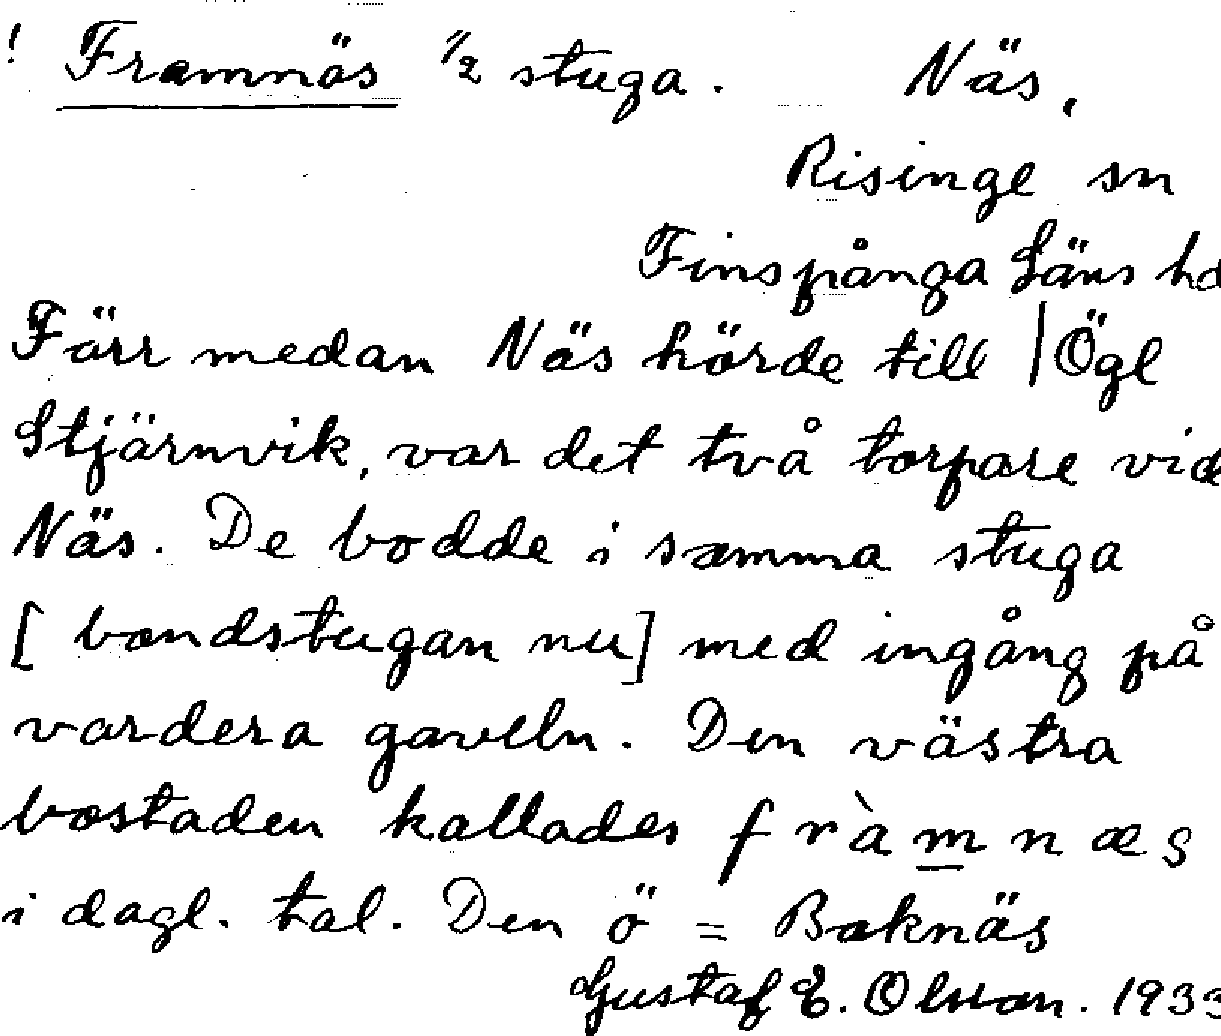 ! Framnäs ½ stuga. Näs,
Risinge sn
Finspånga Läns hd
Förr medan Näs hörde till | Ögl
Stjärnvik, var det två torpare vid
Näs. De bodde i samma stuga
[bondstugan nu] med ingång på
vardera gaveln. Den västra
bostaden kallades fràmnæs
i dagl. tal. Den ö = Baknäs
Gustaf E. Olsson. 1933